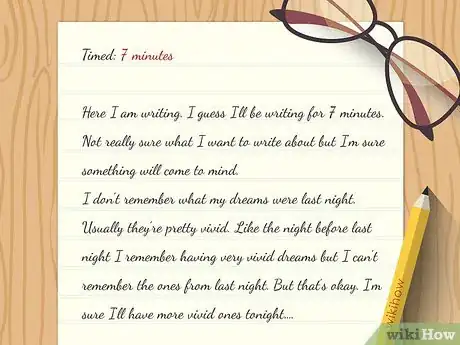 Timed: 7 minutes
Here I am writing. I guess I'll be writing for 7 minutes.
Not really sure what I want to write about but I'm sure
something will come to mind.
I don't remember what my dreams were last night.
Usually they're pretty vivid. Like the night before last
night I remember having very vivid dreams but I can't
remember the ones from last night. But that's okay. I'm
sure I'll have more vivid ones tonight....
wikihow
wikiHow